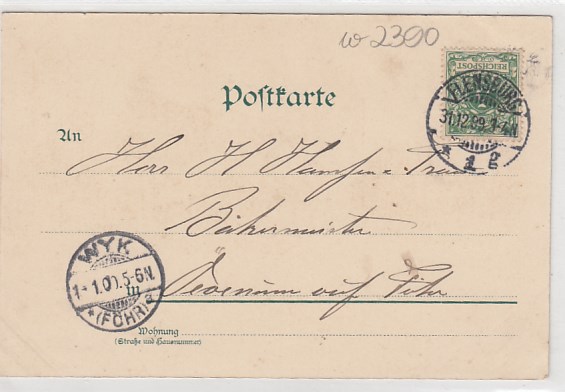 w 2300
REICHSPOST
FLENSBURG
31.12.99. 1-4N.
* 1 g
Postkarte
An
Herr H Hansen & Frau
Bäkermeister
in Oevenum auf Föhr
WYK
1.1.00.5-6N.
* (FÖHR) a
Wohnung
(Straße und Hausnummer)